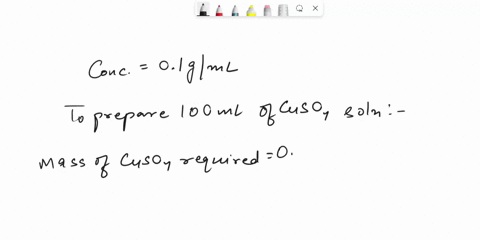 Conc. = 0.1g/mL
To prepare 100mL of CuSO4 soln:-
Mass of CuSO4 required = 0.